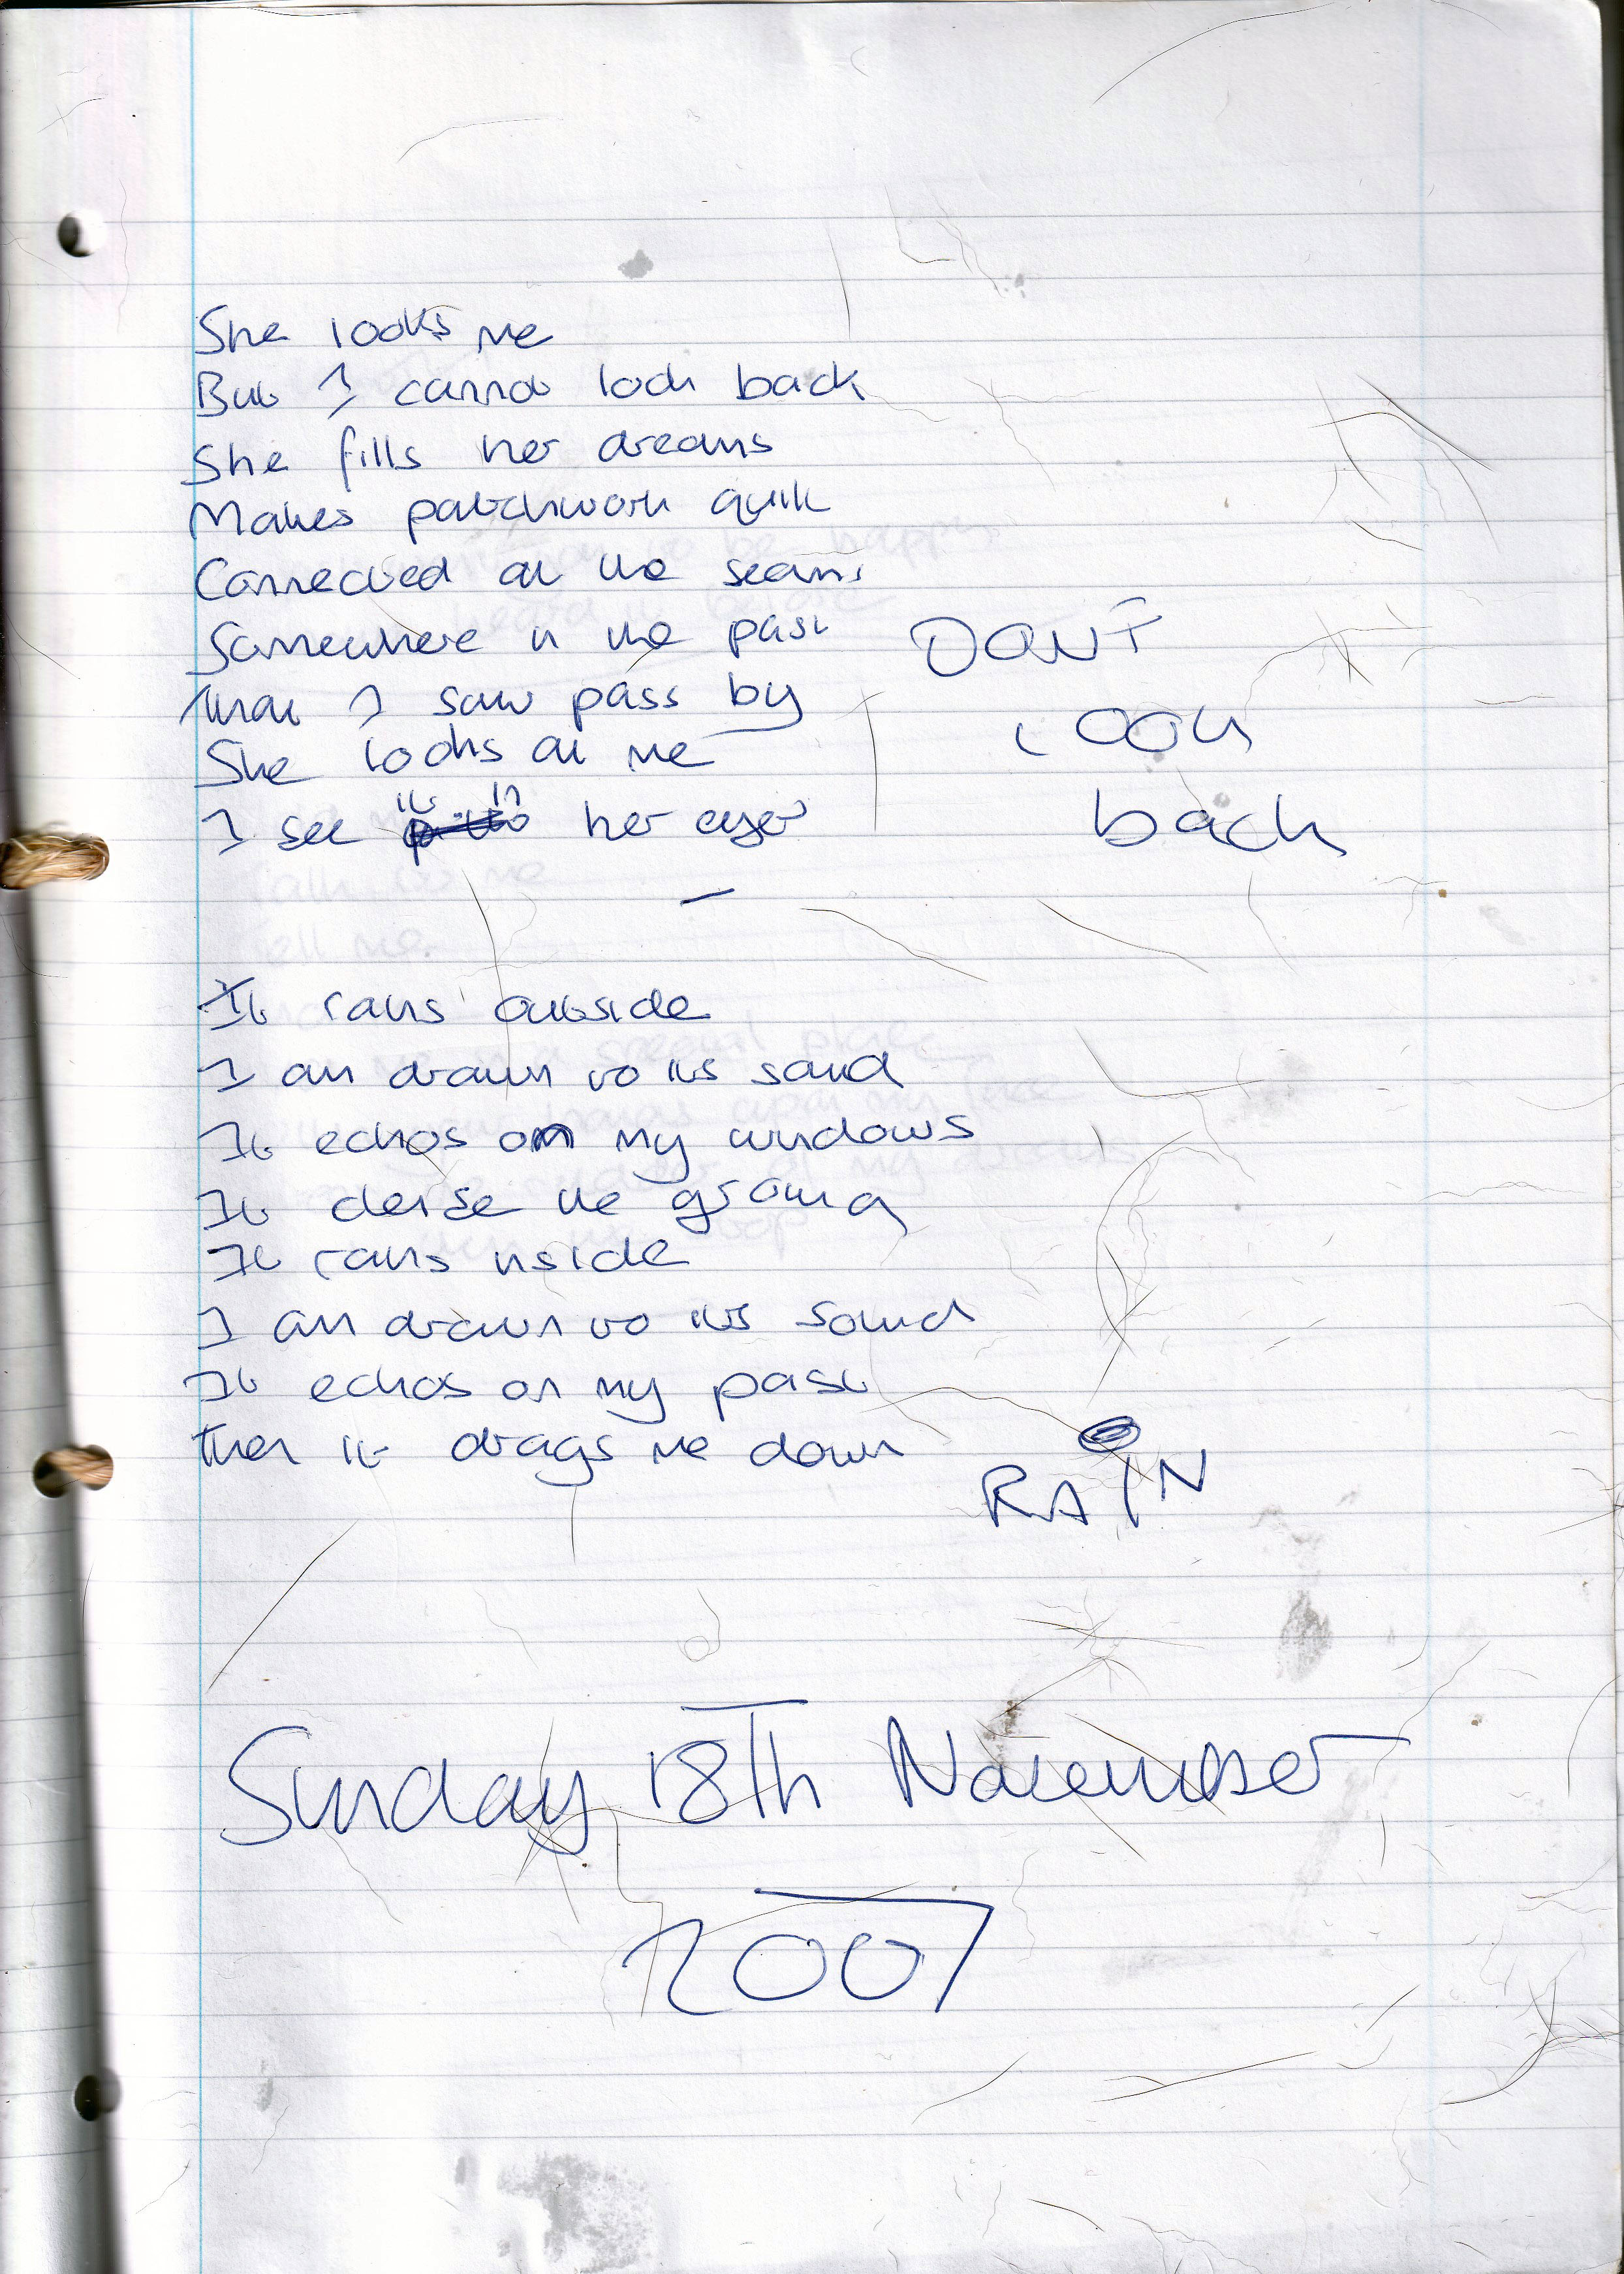 She looks me
But I cannot look back
She fills her dreams
Makes patchwork quilt
Connected at the seams
Somewhere in the past
That I saw pass by
She looks at me
I see it in her eyes
DONT
LOOK
back
It rains outside
I am drawn to its sound
It echos on my windows
It the ground
It rains inside
I am drawn to its sound
It echos on my past
Then it drags me down
RAIN
Sunday 18Th November
2007